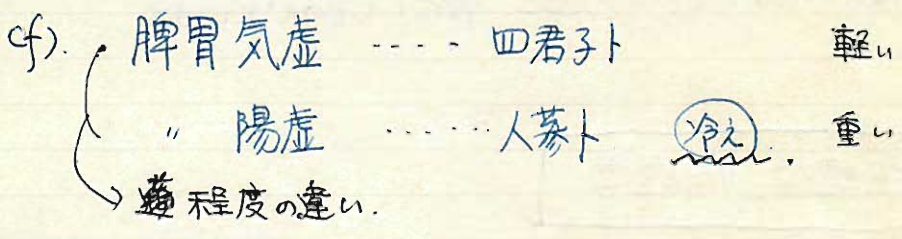 cf). ・脾胃気虚 ・・・・ 四君子ト 軽い
〃 陽虚 ・・・・・・ 人参ト 冷え. 重い
→ 程度の違い.